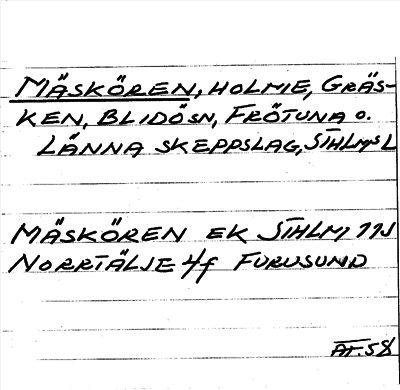 MÄSKÖREN, HOLME, GRÄS-
KEN, BLIDÖSN, FRÖTUNA O.
LÄNNA SKEPPSLAG, STHLMS L
MÄSKÖREN EK STHLM 11J
NORRTÄLJE 4f FURUSUND
AT.58